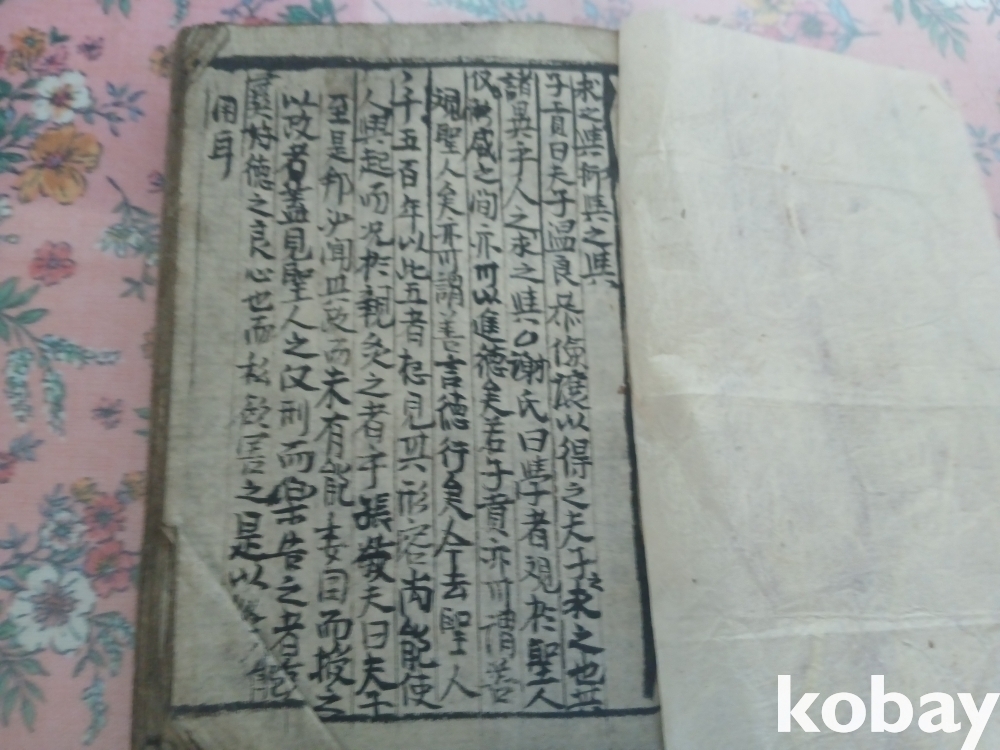 求之與抑與之與
子貢曰夫子温良恭儉讓以得之夫子之求之也其
諸異乎人之求之與○謝氏曰學者覌於聖人
仪威之間亦可以進德矣若子貢亦可謂善
覌聖人矣亦可謂善言德行矣今去聖人
千五百年以此五者想見其形容尚能使
人興起而况於親炙之者乎張敬夫曰夫子
至是邦必聞其政而未有能委囯而授之
以政者盖見聖人之仪刑而樂告之者秉
彛好德之良心也而私欲害之是以
用耳
kobay